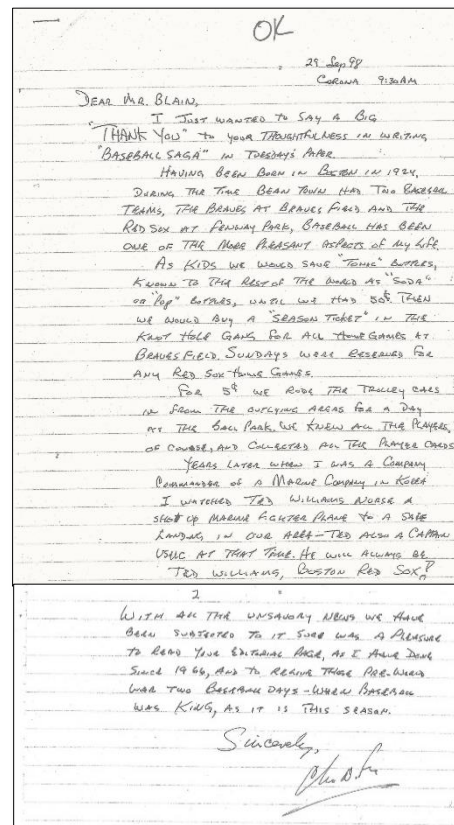 OK
29 Sep 98
CORONA 9:30AM
DEAR MR. BLAIN,
I JUST WANTED TO SAY A BIG
"THANK YOU" TO YOUR THOUGHTFULNESS IN WRITING
"BASEBALL SAGA" IN TUESDAY'S PAPER.
HAVING BEEN BORN IN BOSTON IN 1924,
DURING THE TIME BEAN TOWN HAD TWO BASEBALL
TEAMS, THE BRAVES AT BRAVES FIELD AND THE
RED SOX AT FENWAY PARK, BASEBALL HAS BEEN
ONE OF THE MORE PLEASANT ASPECTS OF MY LIFE.
AS KIDS WE WOULD SAVE "TONIC" BOTTLES,
KNOWN TO THE REST OF THE WORLD AS "SODA"
OR "POP" BOTTLES, UNTIL WE HAD 50¢. THEN
WE WOULD BUY A "SEASON TICKET" IN THE
KNOT HOLE GANG FOR ALL HOME GAMES AT
BRAVES FIELD. SUNDAYS WERE RESERVED FOR
ANY RED SOX HOME GAMES.
FOR 5¢ WE RODE THE TROLLEY CARS
IN FROM THE OUTLYING AREAS FOR A DAY
AT THE BALL PARK. WE KNEW ALL THE PLAYERS,
OF COURSE, AND COLLECTED ALL THE PLAYER CARDS.
YEARS LATER WHEN I WAS A COMPANY
COMMANDER OF A MARINE COMPANY IN KOREA
I WATCHED TED WILLIAMS NURSE A
SHOT UP MARINE FIGHTER PLANE TO A SAFE
LANDING IN OUR AREA - TED ALSO A CAPTAIN
USMC AT THAT TIME. HE WILL ALWAYS BE
TED WILLIAMS, BOSTON RED SOX!
2
WITH ALL THE UNSAVORY NEWS WE HAVE
BEEN SUBJECTED TO IT SURE WAS A PLEASURE
TO READ YOUR EDITORIAL PAGE, AS I HAVE DONE
SINCE 1966, AND TO RELIVE THOSE PRE-WORLD
WAR TWO BASEBALL DAYS - WHEN BASEBALL
WAS KING, AS IT IS THIS SEASON.
Sincerely,